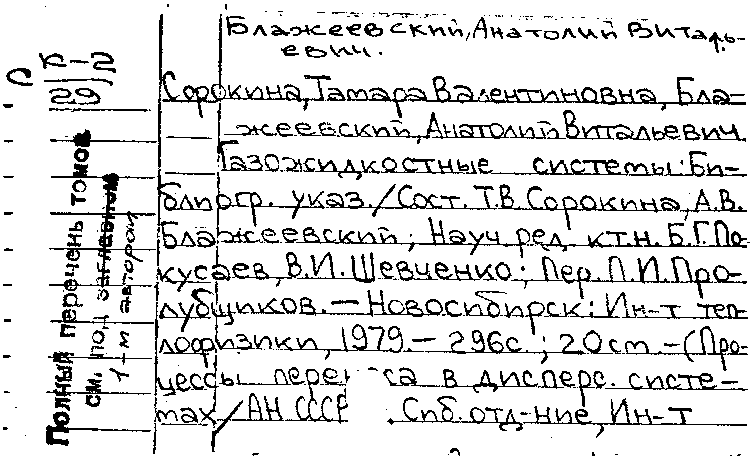 Блажеевский, Анатолий Виталь-
евич.
Сорокина, Тамара Валентиновна, Бла-
жеевский, Анатолий Витальевич.
Газожидкостные системы: Би-
блиогр. указ./Сост. Т.В. Сорокина, А.В.
Блажеевский; Науч. ред. к.т.н. Б.Г. По
кусаев, В.И. Шевченко; Пер. П.И. Про-
лубщиков. — Новосибирск: Ин-т теп-
лофизики, 1979. — 296с.; 20 см. — (Про-
цессы пере са в дисперс. систе-
мах / АН СССР. Сиб. отд-ние, Ин-т
Полный перечень томов
см. под заглавием
1-м автором